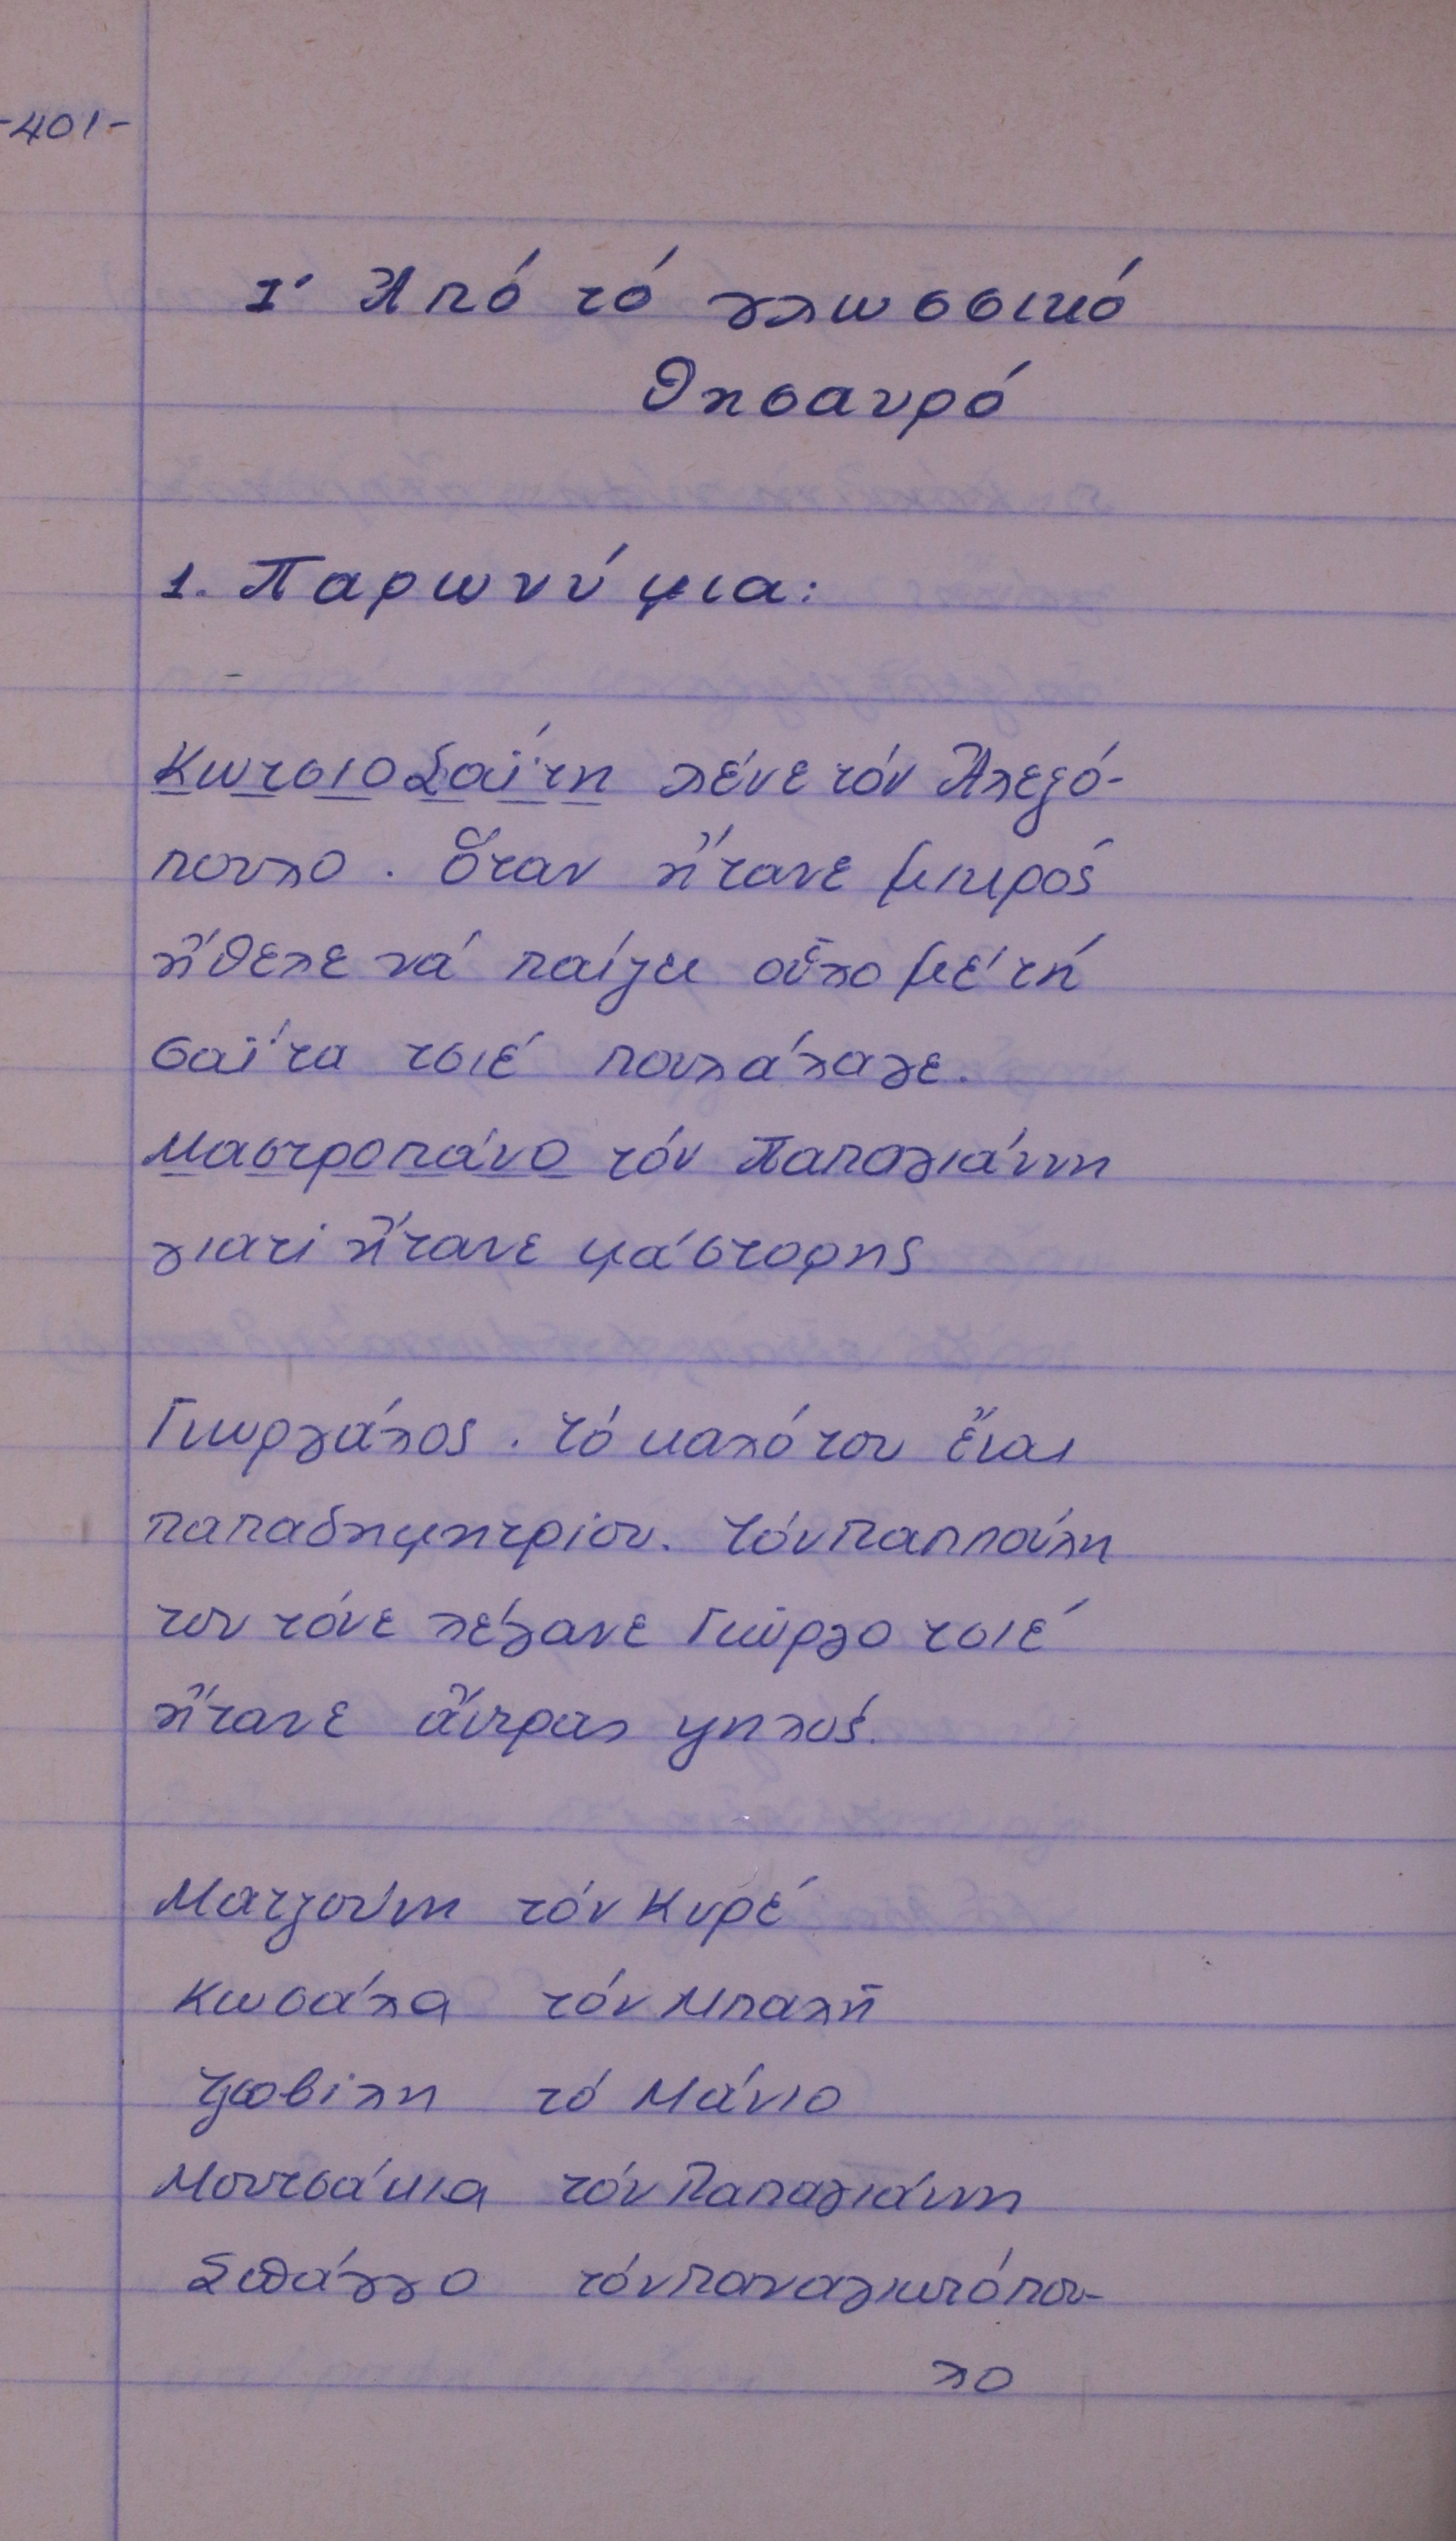 -401-
Ι' Ἀπό τό γλωσσικό
Θησαυρό
1. Παρωνύμια:
Κωτσιοσαΐτη λένε τόν Ἀλεξό-
πουλο. Ὅταν ἤτανε μικρός
ἤθελε νά παίζει οὗλο μέ τή
σαΐτα τσιέ πουλάλαγε.
Μαστροπάνο τόν Παπαγιάννη
γιατί ἤτανε μάστορης
Γιωργάλος. τό καλό του ἔναι
παπαδημητρίου. τόν παππούλη
του τόνε λέγανε Γιώργο τσιέ
ἤτανε ἄντραλ ψηλός.
Ματζούνη τόν Κυρέ
Κωσάλα τόν Μπαλῆ
τζοβίλη τό Μάνιο
Μουτσάκια τόν Παπαγιάννη
Σπάγγο τόν παναγιωτόπου-
λο